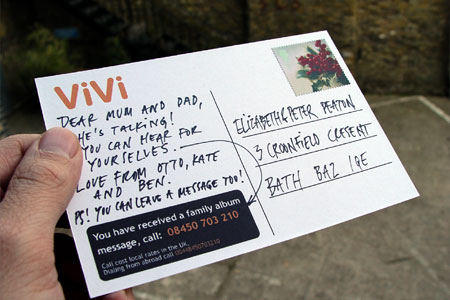 ViVi
DEAR MUM AND DAD,
HE'S TALKING!
YOU CAN HEAR FOR
YOURSELVES.
LOVE FROM OTTO, KATE
AND BEN.
PS! YOU CAN LEAVE A MESSAGE TOO!
You have received a family album
message, call: 08450 703 210
Call cost local rates in the UK.
Dialing from abroad call
ELIZABETH & PETER
3 CRESENT
BATH BA2 1QE